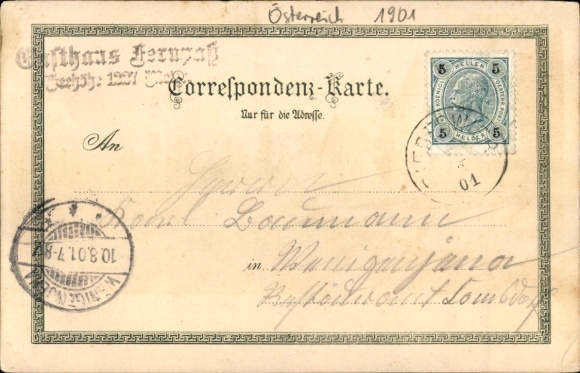 Österreich 1901
Gasthaus Fernpaß
Seehöh: 1207
Correspondenz-Karte.
Nur für die Adresse.
5 HELLER 5
5 HELLER 5
01
An
Herrn
Karl Baumann
in Wenigenjena
10.8.01.7-8
WENIGENJENA